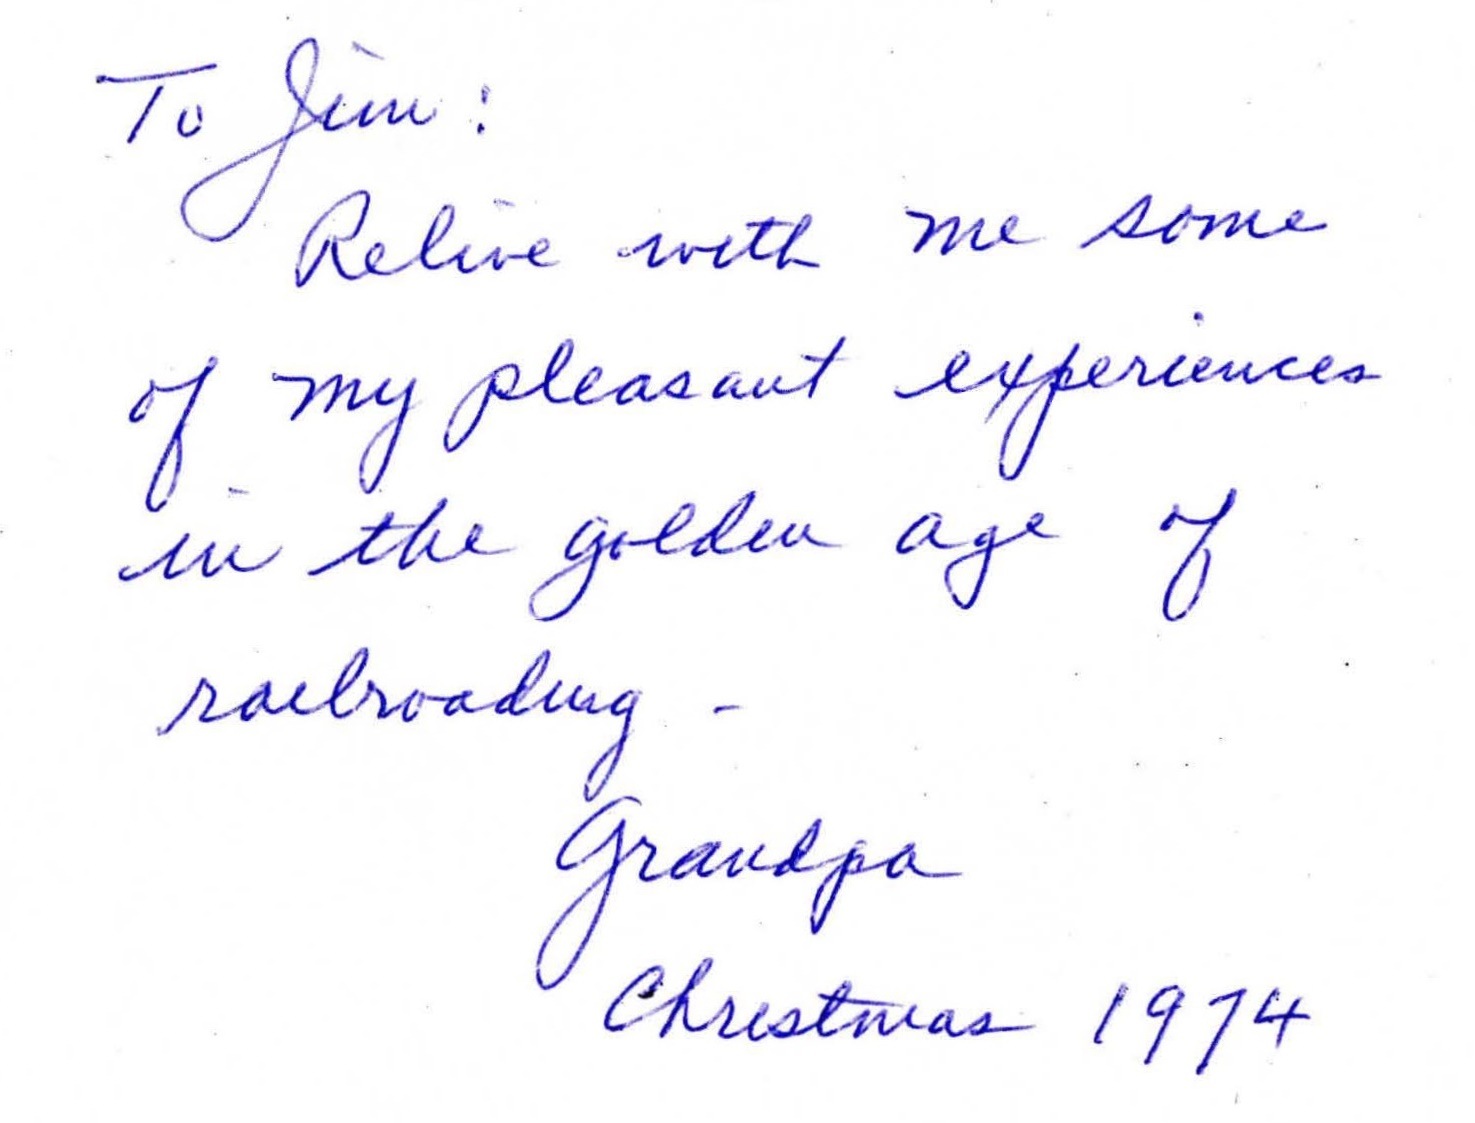 To Jim:
Relive with me some
of my pleasant experiences
in the golden age of
railroading -
Grandpa
Christmas 1974